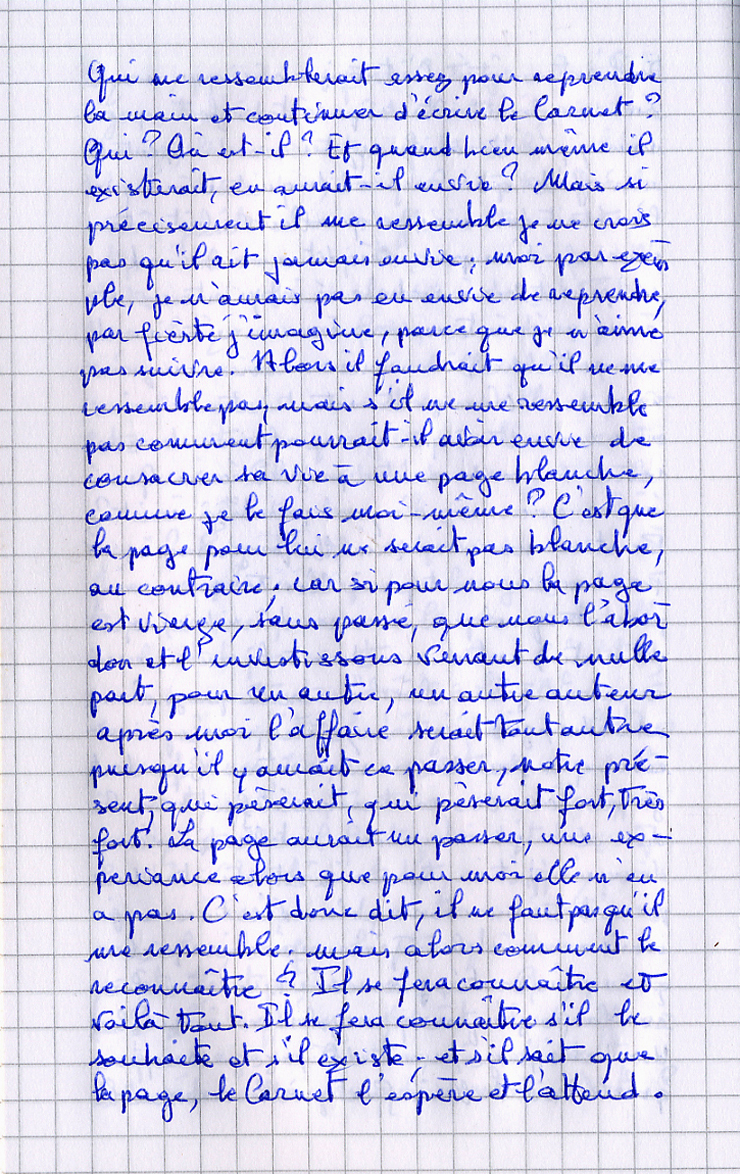 Qui me ressemblerait assez pour reprendre
la main et continuer d'écrire le Carnet ?
Qui ? Où est-il ? Et quand bien même il
existerait, en aurait-il envie ? Mais si
précisément il me ressemble je ne crois
pas qu'il ait jamais envie ; moi par exem
ple, je n'aurais pas eu envie de reprendre,
par fierté j'imagine, parce que je n'aime
pas suivre. Alors il faudrait qu'il ne me
ressemble pas, mais s'il ne me ressemble
pas comment pourrait-il avoir envie de
consacrer sa vie à une page blanche,
comme je le fais moi-même ? C'est que
la page pour lui ne serait pas blanche,
au contraire ; car si pour nous la page
est vierge, sans passé, que nous l'abor
don et l'investissons venant de nulle
part, pour un autre, un autre auteur
après moi l'affaire serait tout autre
puisqu'il y aurait ce passer, notre pré-
sent, qui pèserait, qui pèserait fort, très
fort. La page aurait un passer, une ex-
périance alors que pour moi elle n'en
a pas. C'est donc dit, il ne faut pas qu'il
me ressemble. mais alors comment le
reconnaître ? Il se fera connaître et
voilà tout. Il se fera connaître s'il le
souhaite et s'il existe ; et s'il sait que
la page, le Carnet l'espère et l'attend.